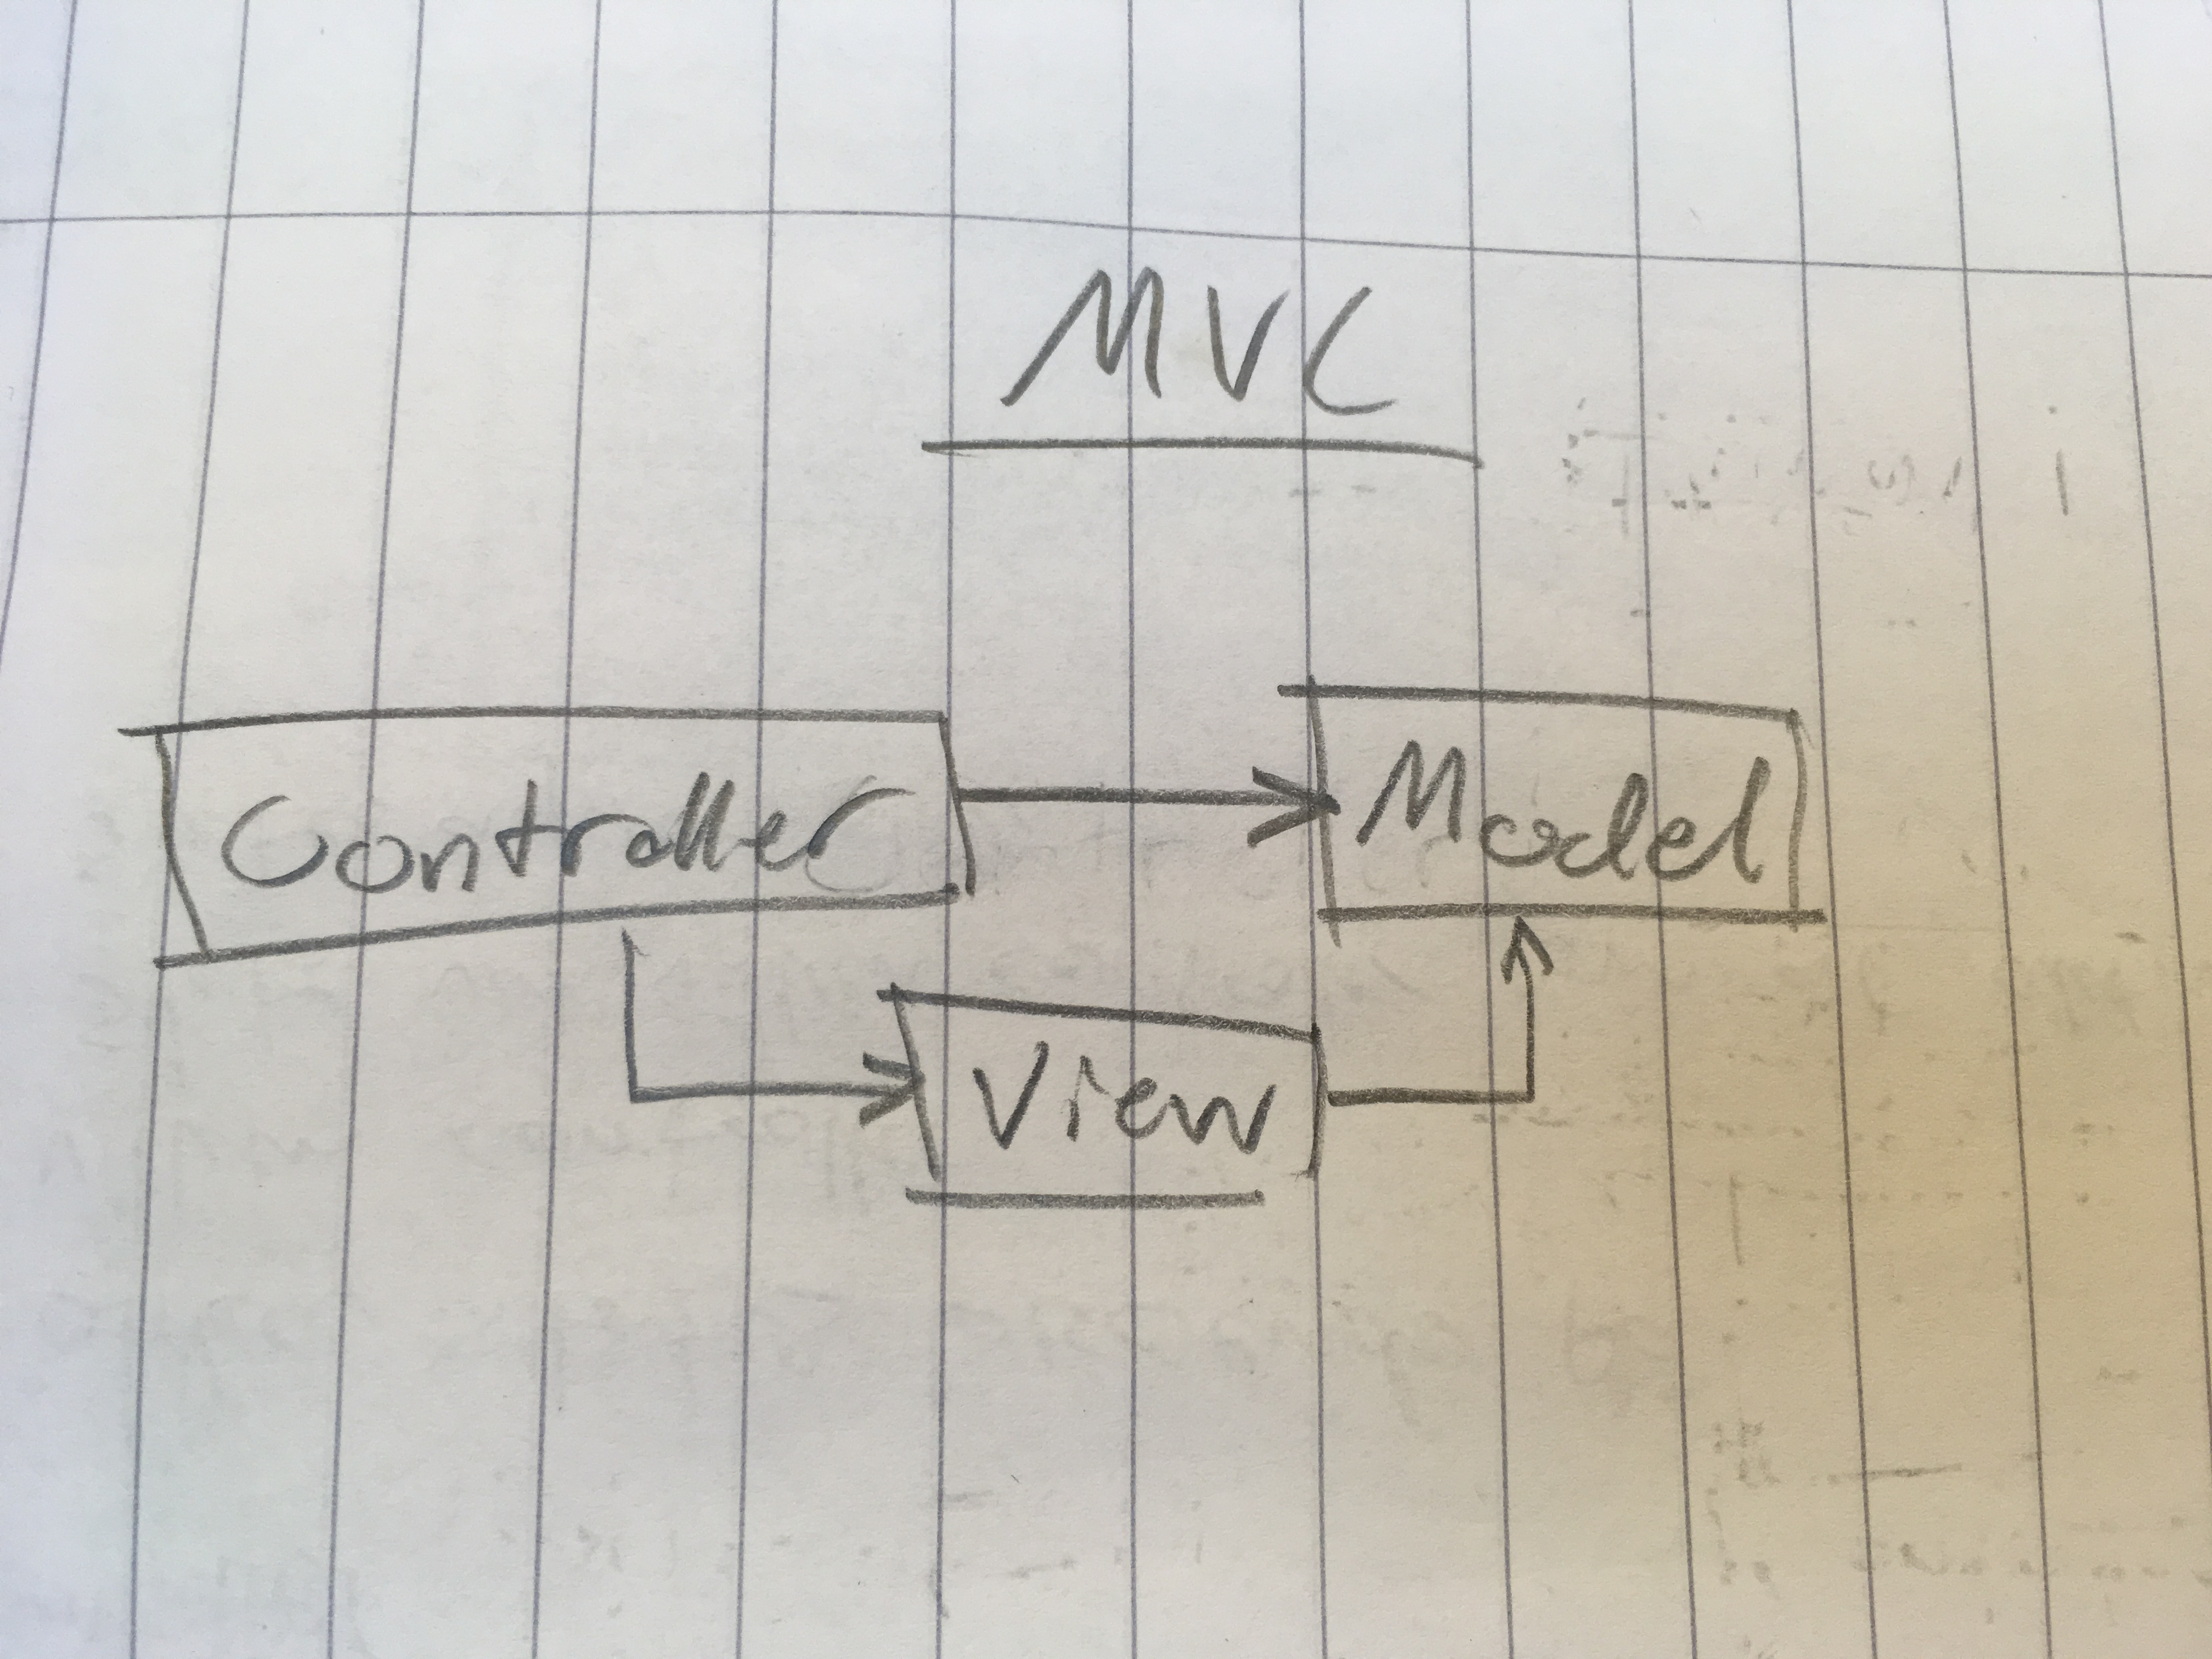 MVC
Controller
Model
View